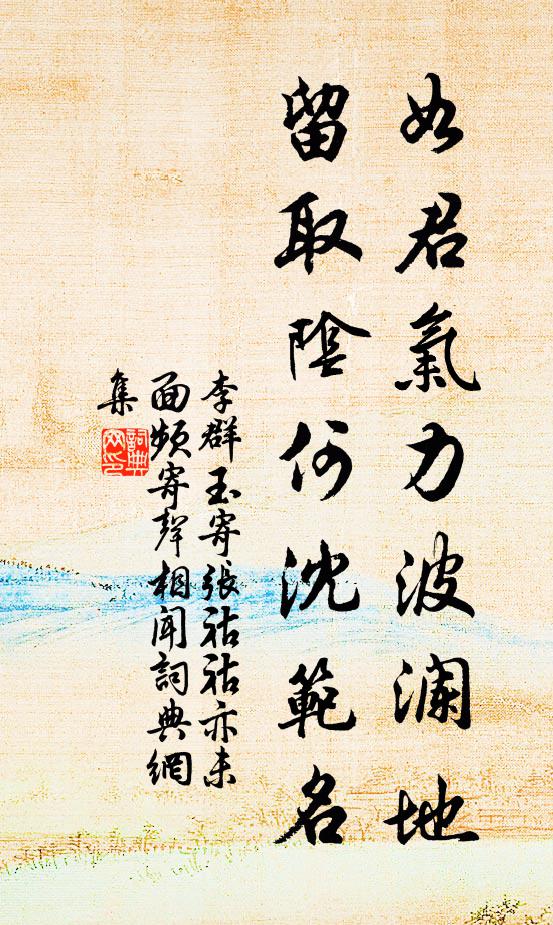 如君氣力波瀾地
留取陰何沈範名
李群玉寄張祜祜亦未
面頻寄聲相聞詞典網
集
詞典
网印